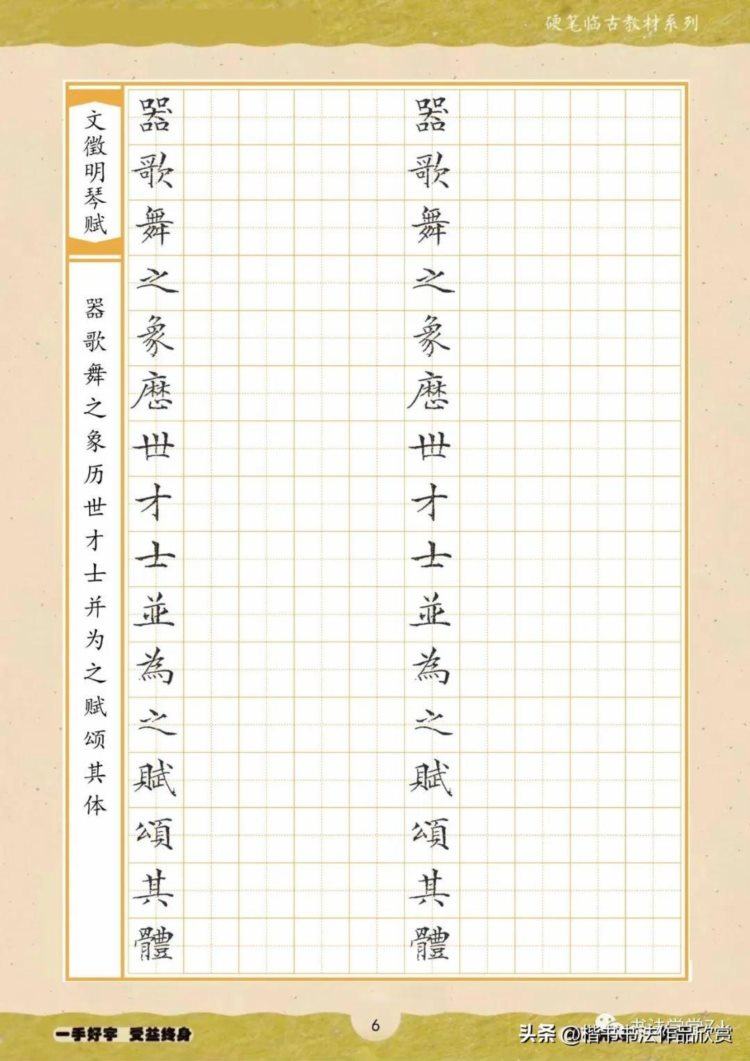 硬笔临古教材系列
文徵明琴赋
器歌舞之象历世才士并为之赋颂其体
器歌舞之象歷世才士並為之賦頌其體
器歌舞之象歷世才士並為之賦頌其體
一手好字 受益终身
6
头条 @楷书书法作品欣赏